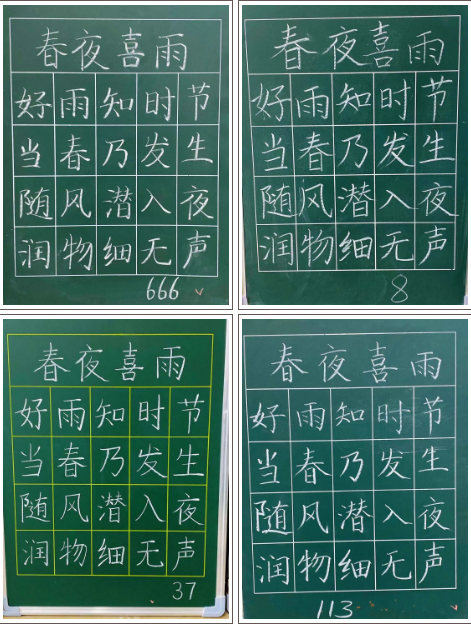 春夜喜雨
好雨知时节
当春乃发生
随风潜入夜
润物细无声
666
春夜喜雨
好雨知时节
当春乃发生
随风潜入夜
润物细无声
8
春夜喜雨
好雨知时节
当春乃发生
随风潜入夜
润物细无声
37
春夜喜雨
好雨知时节
当春乃发生
随风潜入夜
润物细无声
113